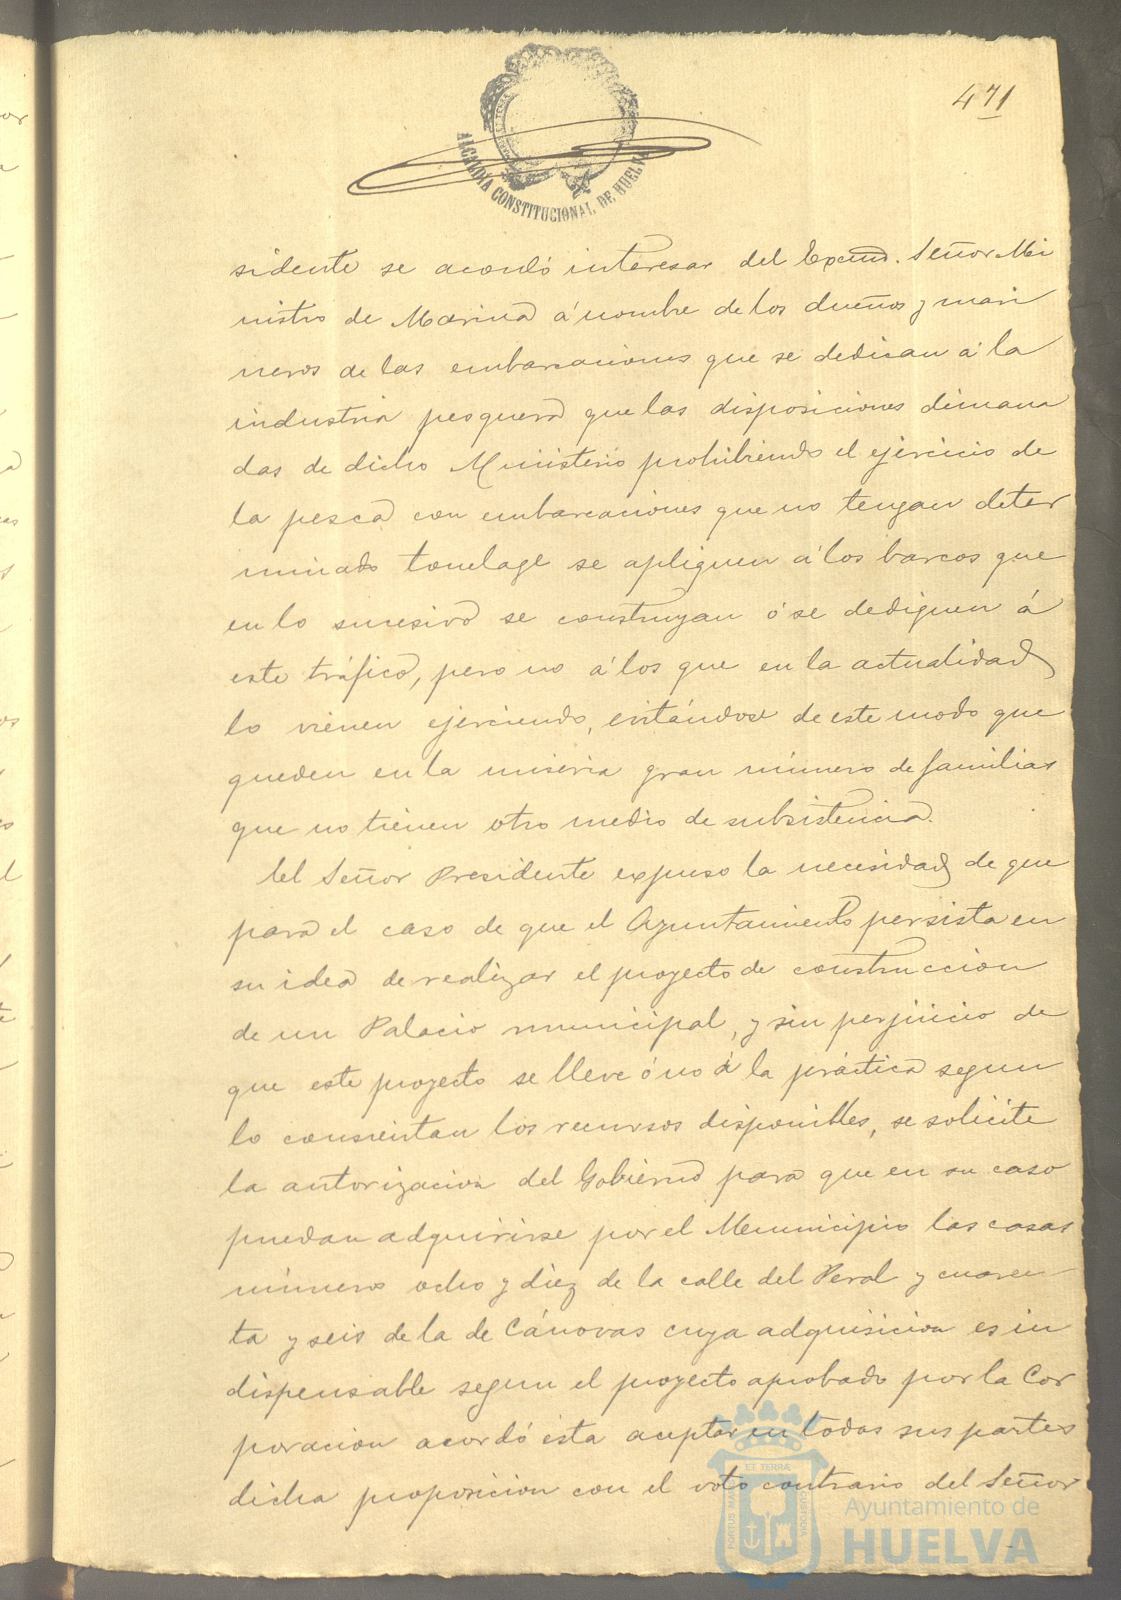 471
ALCALDÍA CONSTITUCIONAL DE HUELVA
sidente se acordó interesar del Excmo. Señor Mi
nistro de Marina á nombre de los dueños y mari
neros de las embarcaciones que se dedican á la
industria pesquera que las disposiciones dimana
das de dicho Ministerio prohibiendo el ejercicio de
la pesca con embarcaciones que no tengan deter
minado tonelage se apliquen á los barcos que
en lo sucesivo se construyan ó se dediquen á
este tráfico, pero no á los que en la actualidad
lo vienen ejerciendo, evitándose de este modo que
queden en la miseria gran número de familias
que no tienen otro medio de subsistencia.
El Señor Presidente expuso la necesidad de que
para el caso de que el Ayuntamiento persista en
su idea de realizar el proyecto de construccion
de un Palacio municipal, y sin perjuicio de
que este proyecto se lleve ó no á la práctica segun
lo consientan los recursos disponibles, se solicite
la autorizacion del Gobierno para que en su caso
puedan adquirirse por el Municipio las casas
número ocho y diez de la calle del Peral y cuaren
ta y seis de la de Cánovas cuya adquisicion es in
dispensable segun el proyecto aprobado por la Cor
poracion acordó ésta aceptar en todas sus partes
dicha proposicion con el voto contrario del Señor
ET TERRÆ
PORTUS MARIS
CUSTODIA
Ayuntamiento de
HUELVA